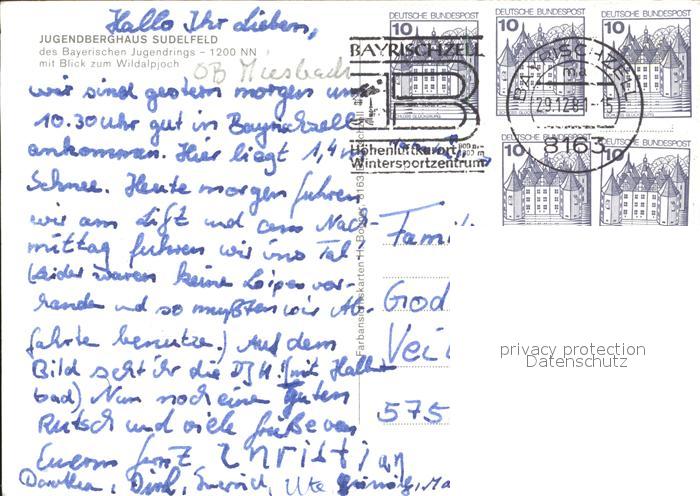 Hallo Ihr Lieben,
JUGENDBERGHAUS SUDELFELD
des Bayerischen Jugendrings – 1200 NN
mit Blick zum Wildalpjoch
OB Miesbach
wir sind gestern morgen um
10.30 Uhr gut in Bayrischzell
ankommen. Hier liegt 1,4 m
Schnee. Heute morgen fuhren
wir am Lift und am Nach-
mittag fuhren wir ins Tal
(Leider waren keine Loipen vor-
handen und so mußten wir Ab-
fahrts benutze.) Auf dem
Bild seht ihr die DJH! (mit Hallen
bad) Nun noch einen guten
Rutsch und viele Grüße von
Eurem Christian
Dorothea, Dirk, Ute
Farbansichtskarten H. 8163
DEUTSCHE BUNDESPOST
10
DEUTSCHE BUNDESPOST
10
DEUTSCHE BUNDESPOST
10
10
10
SCHLOSS GLÜCKSBURG
BAYRISCHZELL
B
Höhenluftkurort
Wintersportzentrum
BAYRISCHZELL
ma
29.12.81-15
8163
Famil
God
Vei
575
privacy protection
Datenschutz